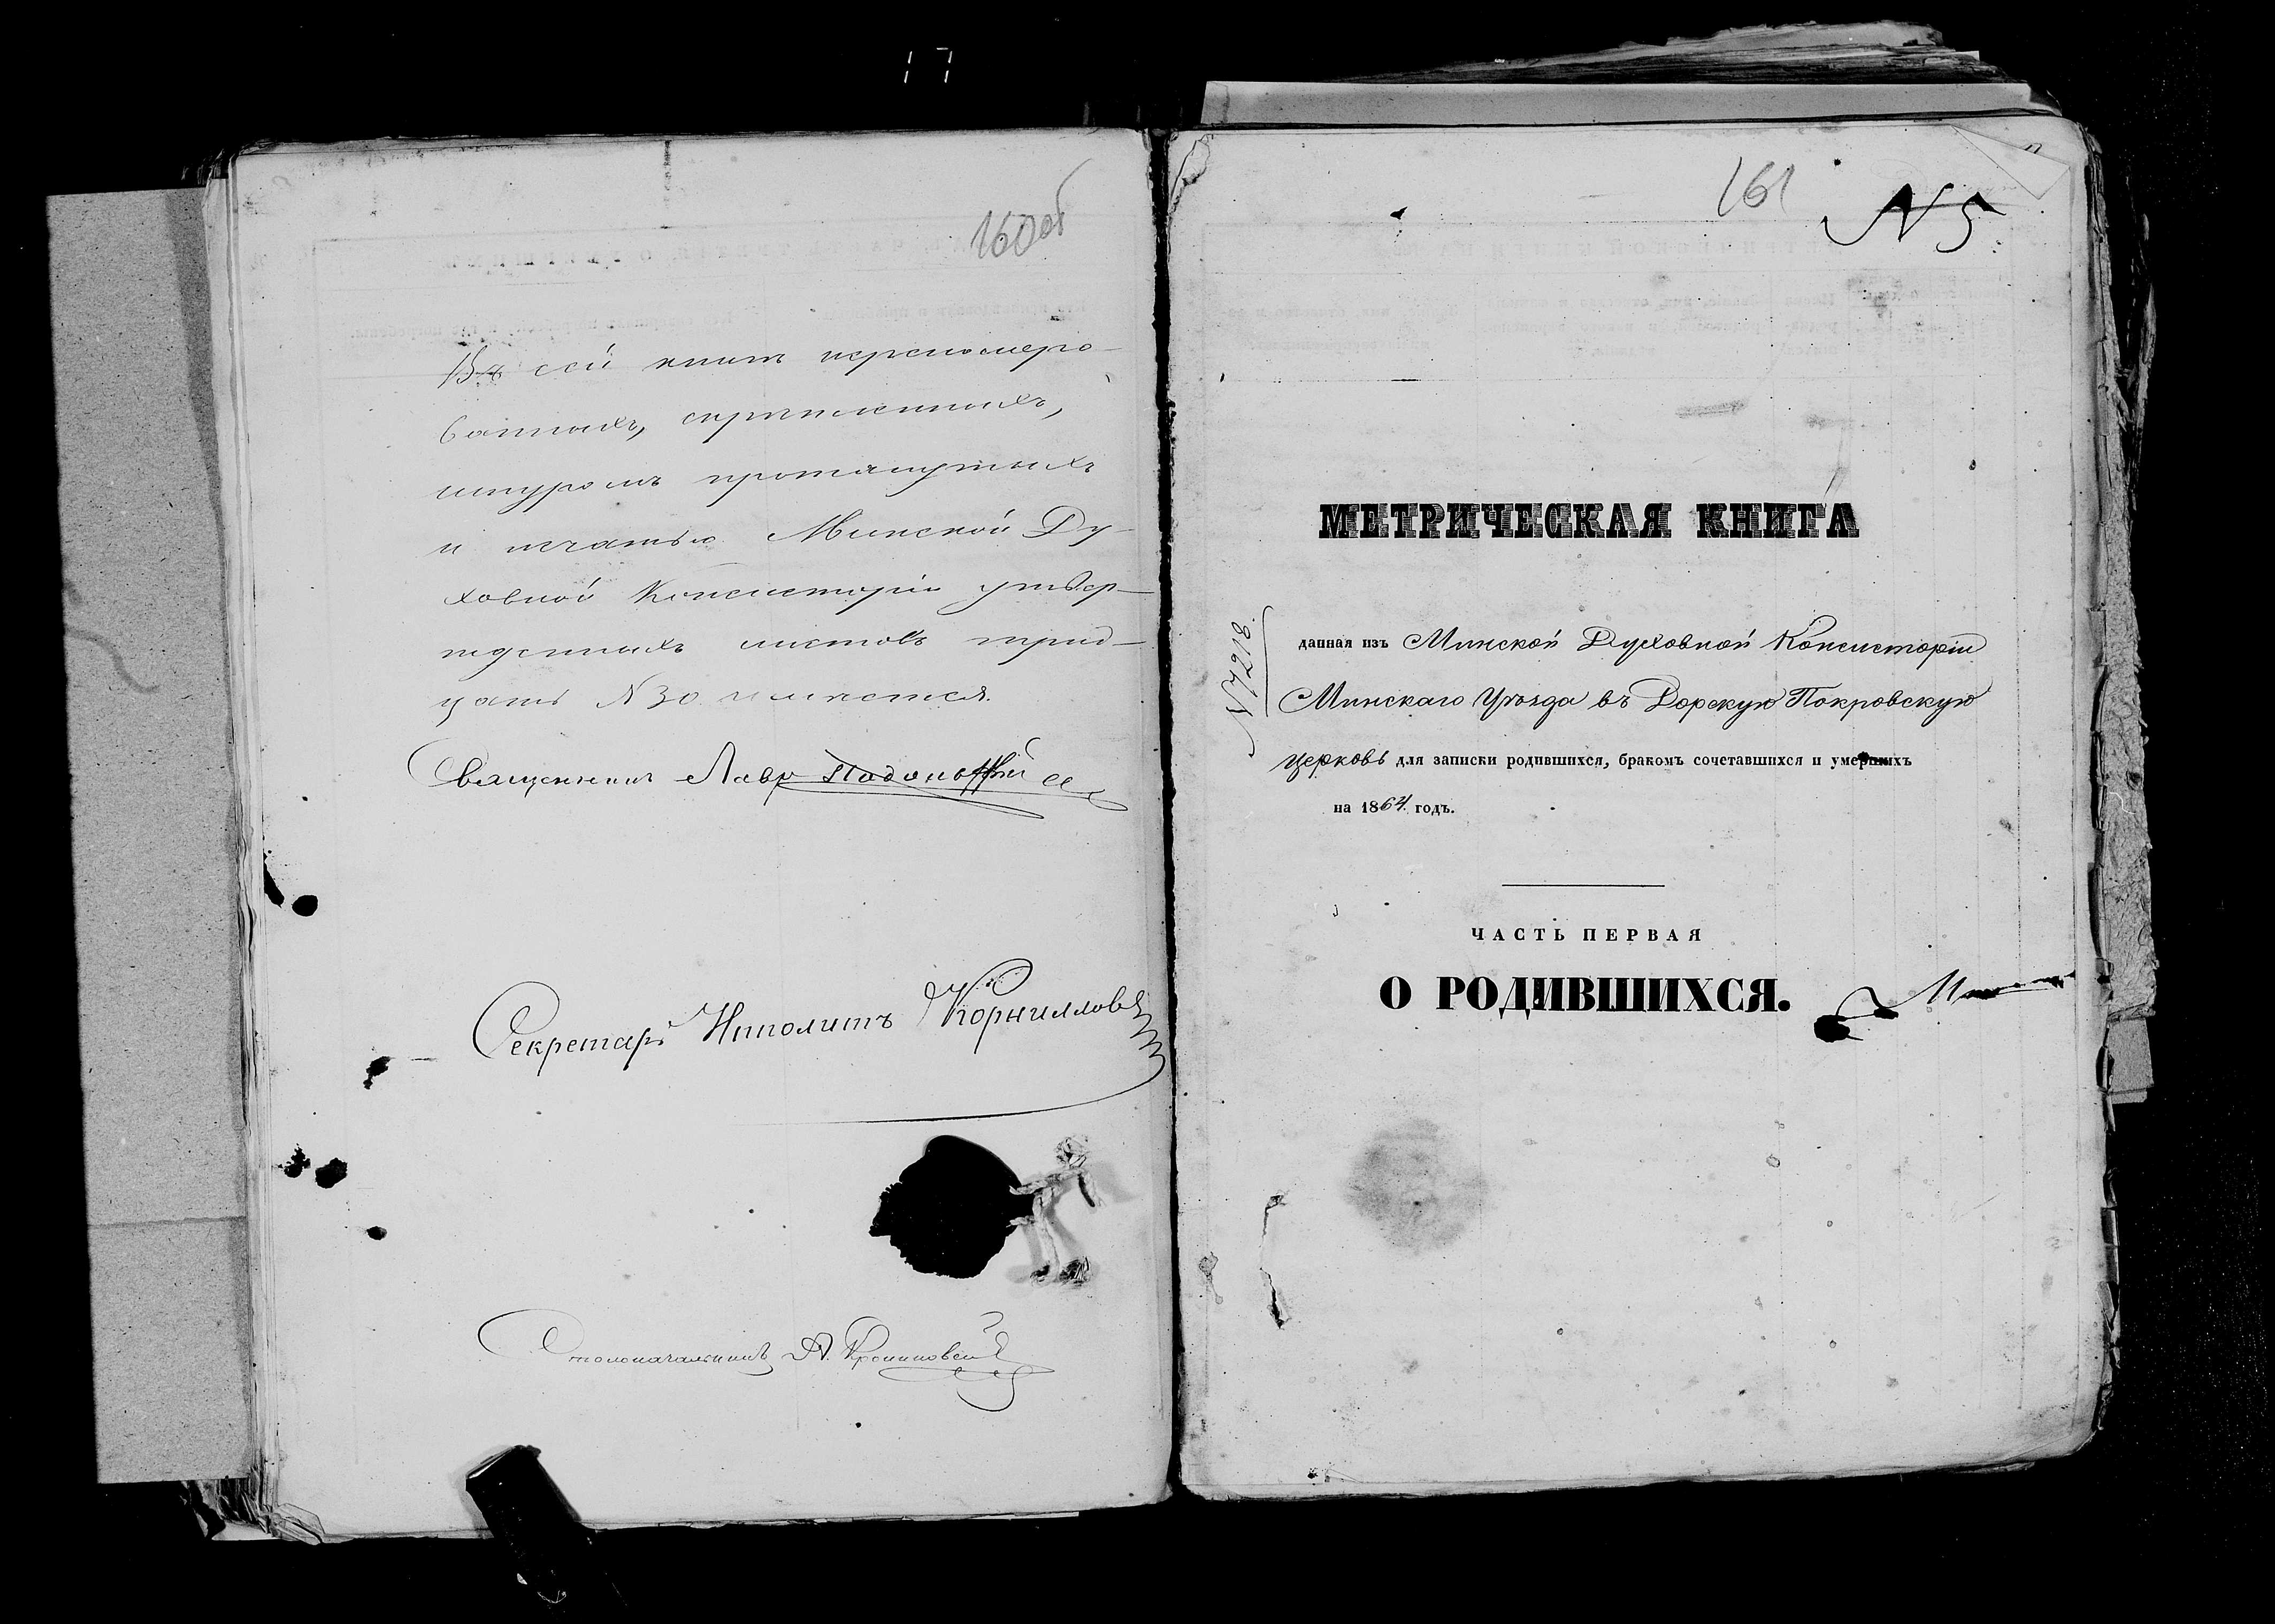 17
160 об
Въ сей книгѣ перенумеро-
ванныхъ, скрѣпленныхъ,
шнуромъ протянутыхъ
и печатью Минской Ду-
ховной Консисторіи утвер-
жденныхъ листовъ трид-
цать № 30 имѣется.
Священникъ Лавр
Секретарь Иполитъ Корнилловъ
Столоначальникъ А.
161
N 5
МЕТРИЧЕСКАЯ КНИГА
N 7218.
данная изъ Минской Духовной Консисторіи
Минскаго Уѣзда въ Дорскую Покровскую
церковь для записки родившихся, бракомъ сочетавшихся и умершихъ
на 1864 годъ.
ЧАСТЬ ПЕРВАЯ
О РОДИВШИХСЯ.